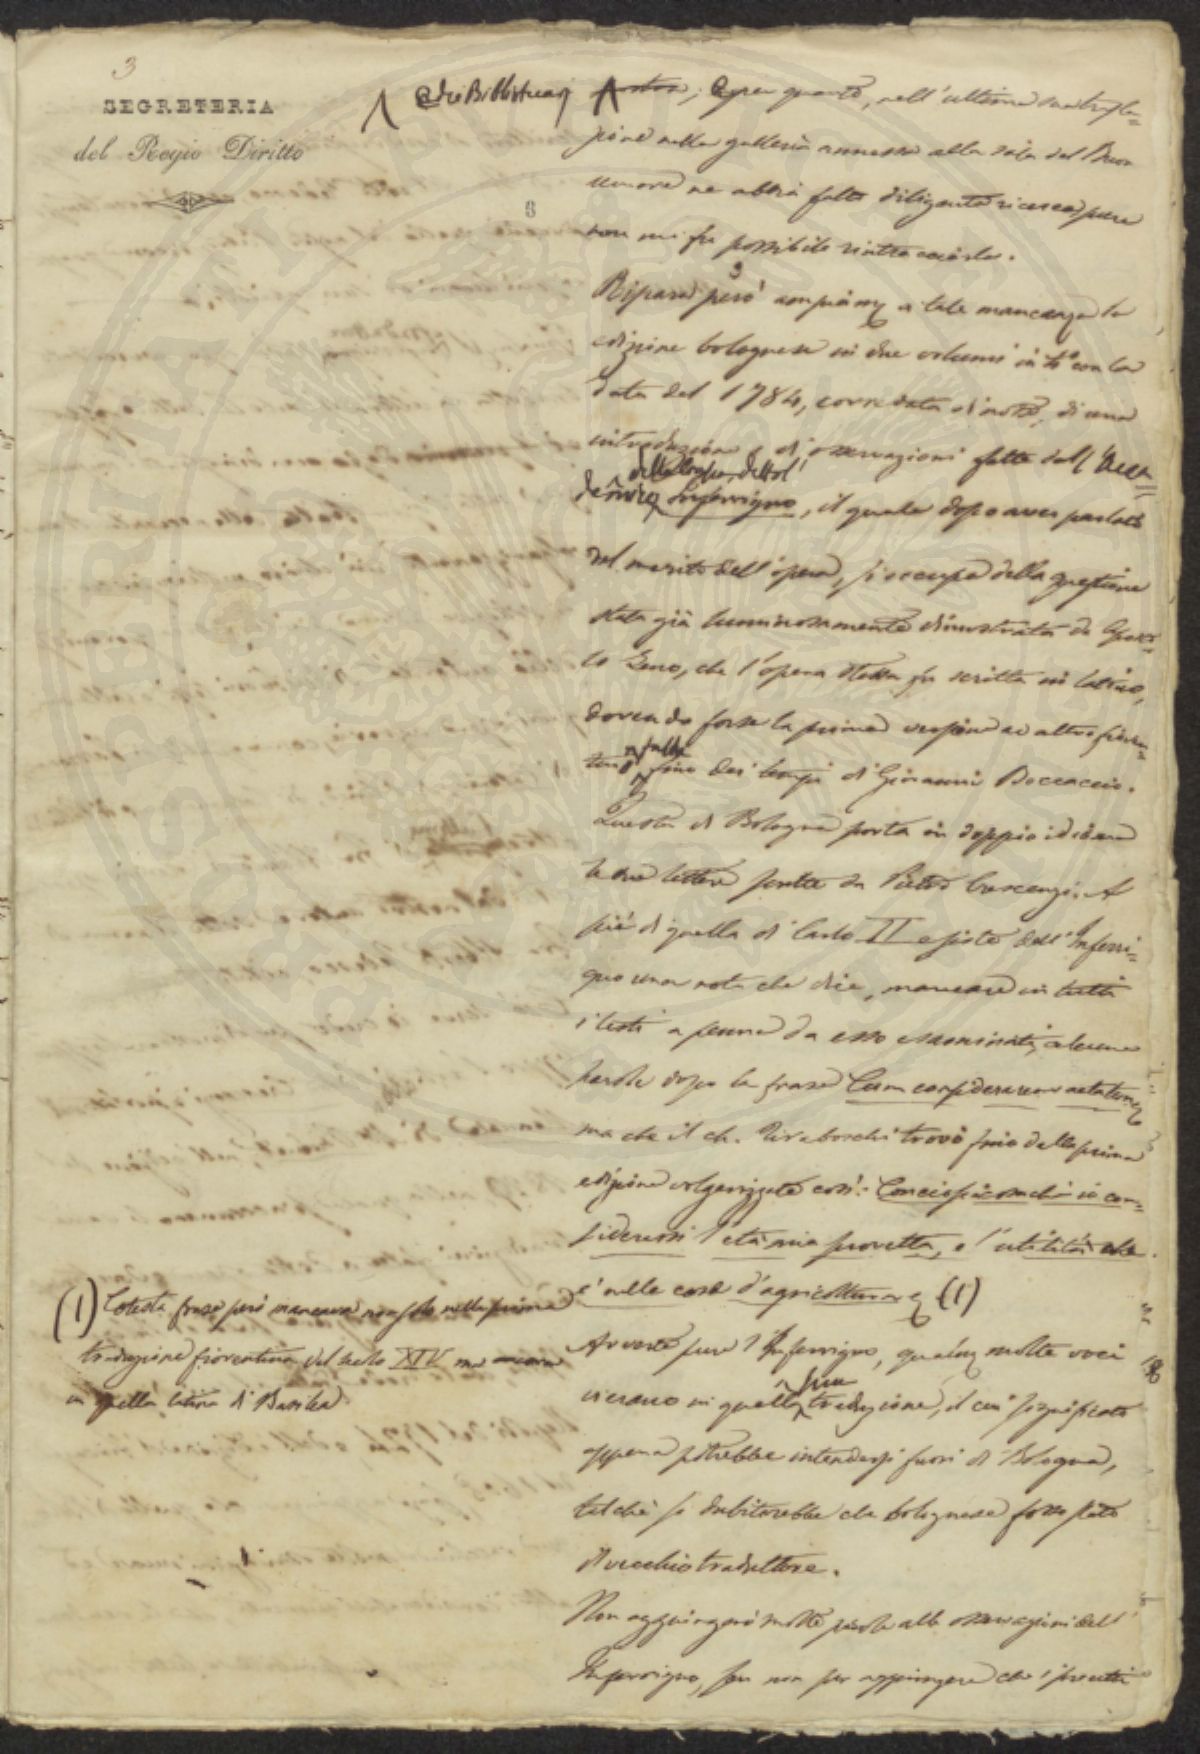 3
SEGRETERIA
del Regio Diritto
8
e per quanto, nell'ultima sua trasla=
zione nella galleria annessa alla sala del Buon
umore ne abbia fatte diligenti ricerche, pure
non mi fu possibile rintracciarla.
Ripara però a tale mancanza la
edizione bolognese in due volumi in 4º con la
data del 1784, corredata di note, di una
introduzione e di osservazioni fatte dall'Acca
della Crusca, detto l'
Inferrigno, il quale dopo aver parlato
del merito dell'opera, si occupa della questione
stata già luminosamente dimostrata da Aposto=
lo Zeno, che l'opera stessa fu scritta in latino,
dovendo forse la prima versione ad altro fioren=
tino
fino dei tempi di Giovanni Boccaccio.
Questa di Bologna porta in doppio idioma
le due lettere scritte da Pietro Crescenzi. A
piè di quella di Carlo II è posta dell'Inferri=
gno una nota che dice, mancare in tutti
i testi a penna da esso esaminati, alcune
parole dopo la frase Cum considerarem aetatem
ma che il ch. Tiraboschi trovò fino dalla prima
edizione volgarizzata così: Conciosiacosachè io con=
siderassi l'età mia provetta, e l'utilità che
è nelle cose d'agricoltura (1)
(1) Cotesta frase però mancava non solo nella prima
traduzione fiorentina del secolo XIV ma ancora
in quella latina di Basilea
Avverte pure l'Inferrigno, molte voci
vi erano in quella
sua
traduzione, il cui significato
appena potrebbe intendersi fuori di Bologna,
talchè si dubiterebbe che bolognese fosse stato
il vecchio traduttore.
Non aggiungerò molte parole alle osservazioni dell'
Inferrigno, se non per aggiungere che i